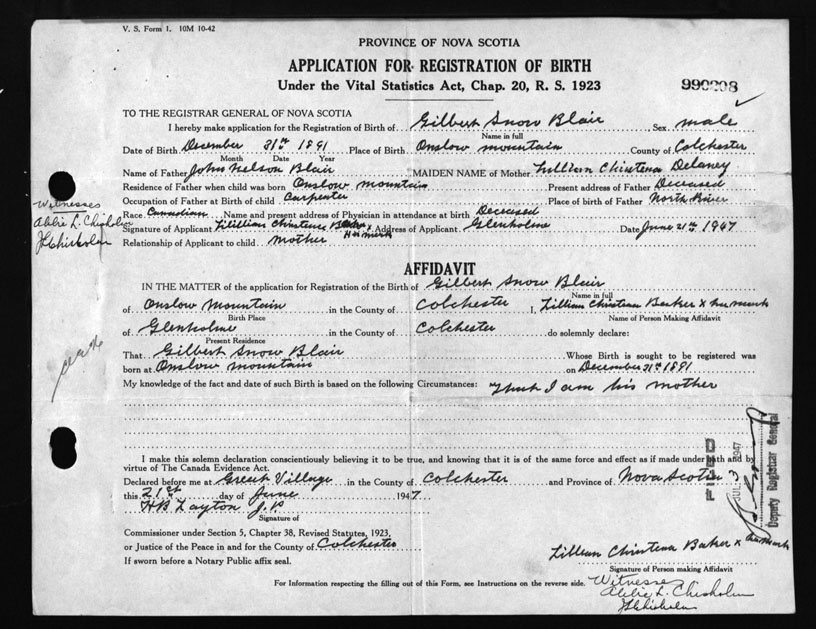 V. S. Form 1. 10M 10-42
PROVINCE OF NOVA SCOTIA
APPLICATION FOR REGISTRATION OF BIRTH
Under the Vital Statistics Act, Chap. 20, R. S. 1923
990208
TO THE REGISTRAR GENERAL OF NOVA SCOTIA
I hereby make application for the Registration of Birth of Gilbert Snow Blair Sex male
Name in full
Date of Birth December 21st 1891 Place of Birth Onslow mountain County of Colchester
Month Date Year
Name of Father John Nelson Blair MAIDEN NAME of Mother Lillian Christena Delaney
Residence of Father when child was born Onslow mountain Present address of Father Deceased
Occupation of Father at Birth of child Carpenter Place of birth of Father North River
Race Canadian Name and present address of Physician in attendance at birth Deceased
Witnesses
Abbie L. Chisholm
Signature of Applicant Lillian Christena Baker x Her mark Address of Applicant Glenholme Date June 21st 1947
Relationship of Applicant to child mother
AFFIDAVIT
IN THE MATTER of the application for Registration of the Birth of Gilbert Snow Blair
Name in full
of Onslow Mountain in the County of Colchester I, Lillian Christena Baker x her mark
Birth Place Name of Person Making Affidavit
of Glenholme in the County of Colchester do solemnly declare:
Present Residence
That Gilbert Snow Blair Whose Birth is sought to be registered was
born at Onslow mountain on December 21st 1891
My knowledge of the fact and date of such Birth is based on the following Circumstances: that I am his mother
I make this solemn declaration conscientiously believing it to be true, and knowing that it is of the same force and effect as if made under oath and by
virtue of The Canada Evidence Act.
Declared before me at Great Village in the County of Colchester and Province of Nova Scotia
this 21st day of June 1947
HB Layton J.P
Signature of
Commissioner under Section 5, Chapter 38, Revised Statutes, 1923,
or Justice of the Peace in and for the County of Colchester
If sworn before a Notary Public affix seal.
FILED
JUL 3 1947
Deputy Registrar General
Lillian Christena Baker x her mark
Signature of Person making Affidavit
For Information respecting the filling out of this Form, see Instructions on the reverse side.
Witnesses
Abbie L. Chisholm